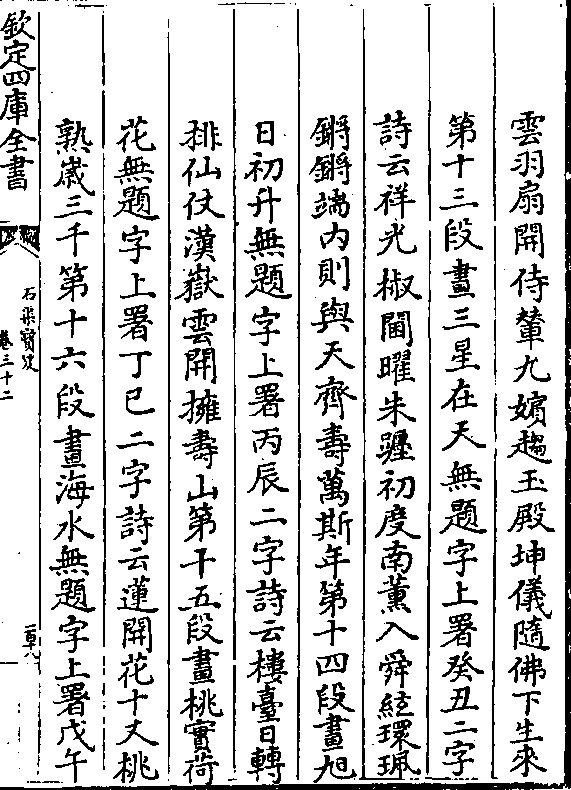 雲羽扇開侍輦九嬪趨玉殿坤儀隨佛下生來
第十三段畫三星在天無題字上署癸丑二字
詩云祥光椒閫曜朱躔初度南薰入舜絃環珮
鏘鏘端内則與天齊壽萬斯年第十四段畫旭
日初升無題字上署丙辰二字詩云樓臺日轉
排仙仗漢嶽雲開擁壽山第十五段畫桃實荷
花無題字上署丁巳二字詩云蓮開花十丈桃
熟嵗三千第十六段畫海水無題字上署戊午
欽定四庫全書
石渠寳笈
卷三十二